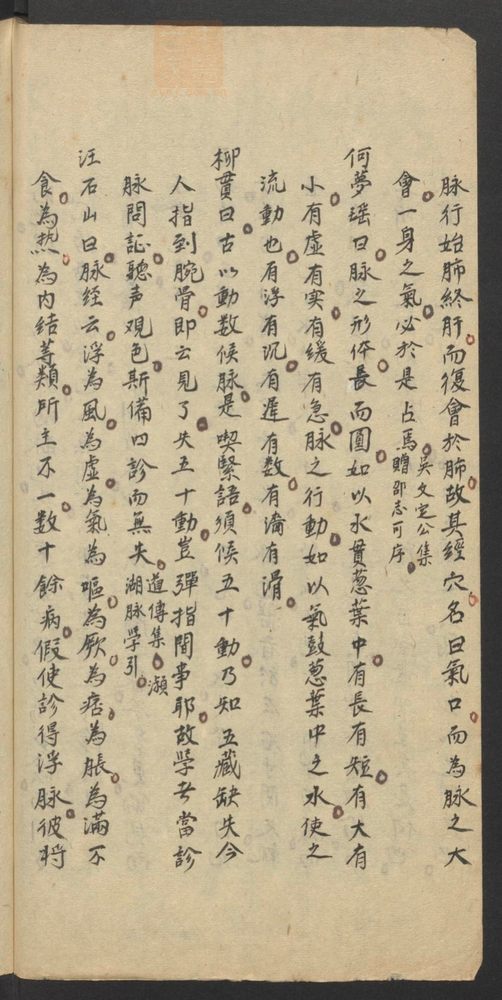 脉行始肺終肝而復會於肺故其經穴名曰氣口而為脉之大
會一身之氣必於是占焉
吳文定公集
贈邵志可序
何夢瑤曰脉之形体長而圓如以水貫葱葉中有長有短有大有
小有虛有实有緩有急脉之行動如以氣鼓葱葉中之水使之
流動也有浮有沉有遲有数有濇有滑
柳貫曰古以動数候脉是喫緊語須候五十動乃知五藏缺失今
人指到腕骨即云見了夫五十動豈彈指間事耶故学者當診
脉問証聽声观色斯備四診而無失
道傳集 瀕
湖脉学引
汪石山曰脉経云浮為風為虛為氣為嘔為厥為痞為脹為滿不
食為热為内结等類所主不一数十餘病假使診得浮脉彼将